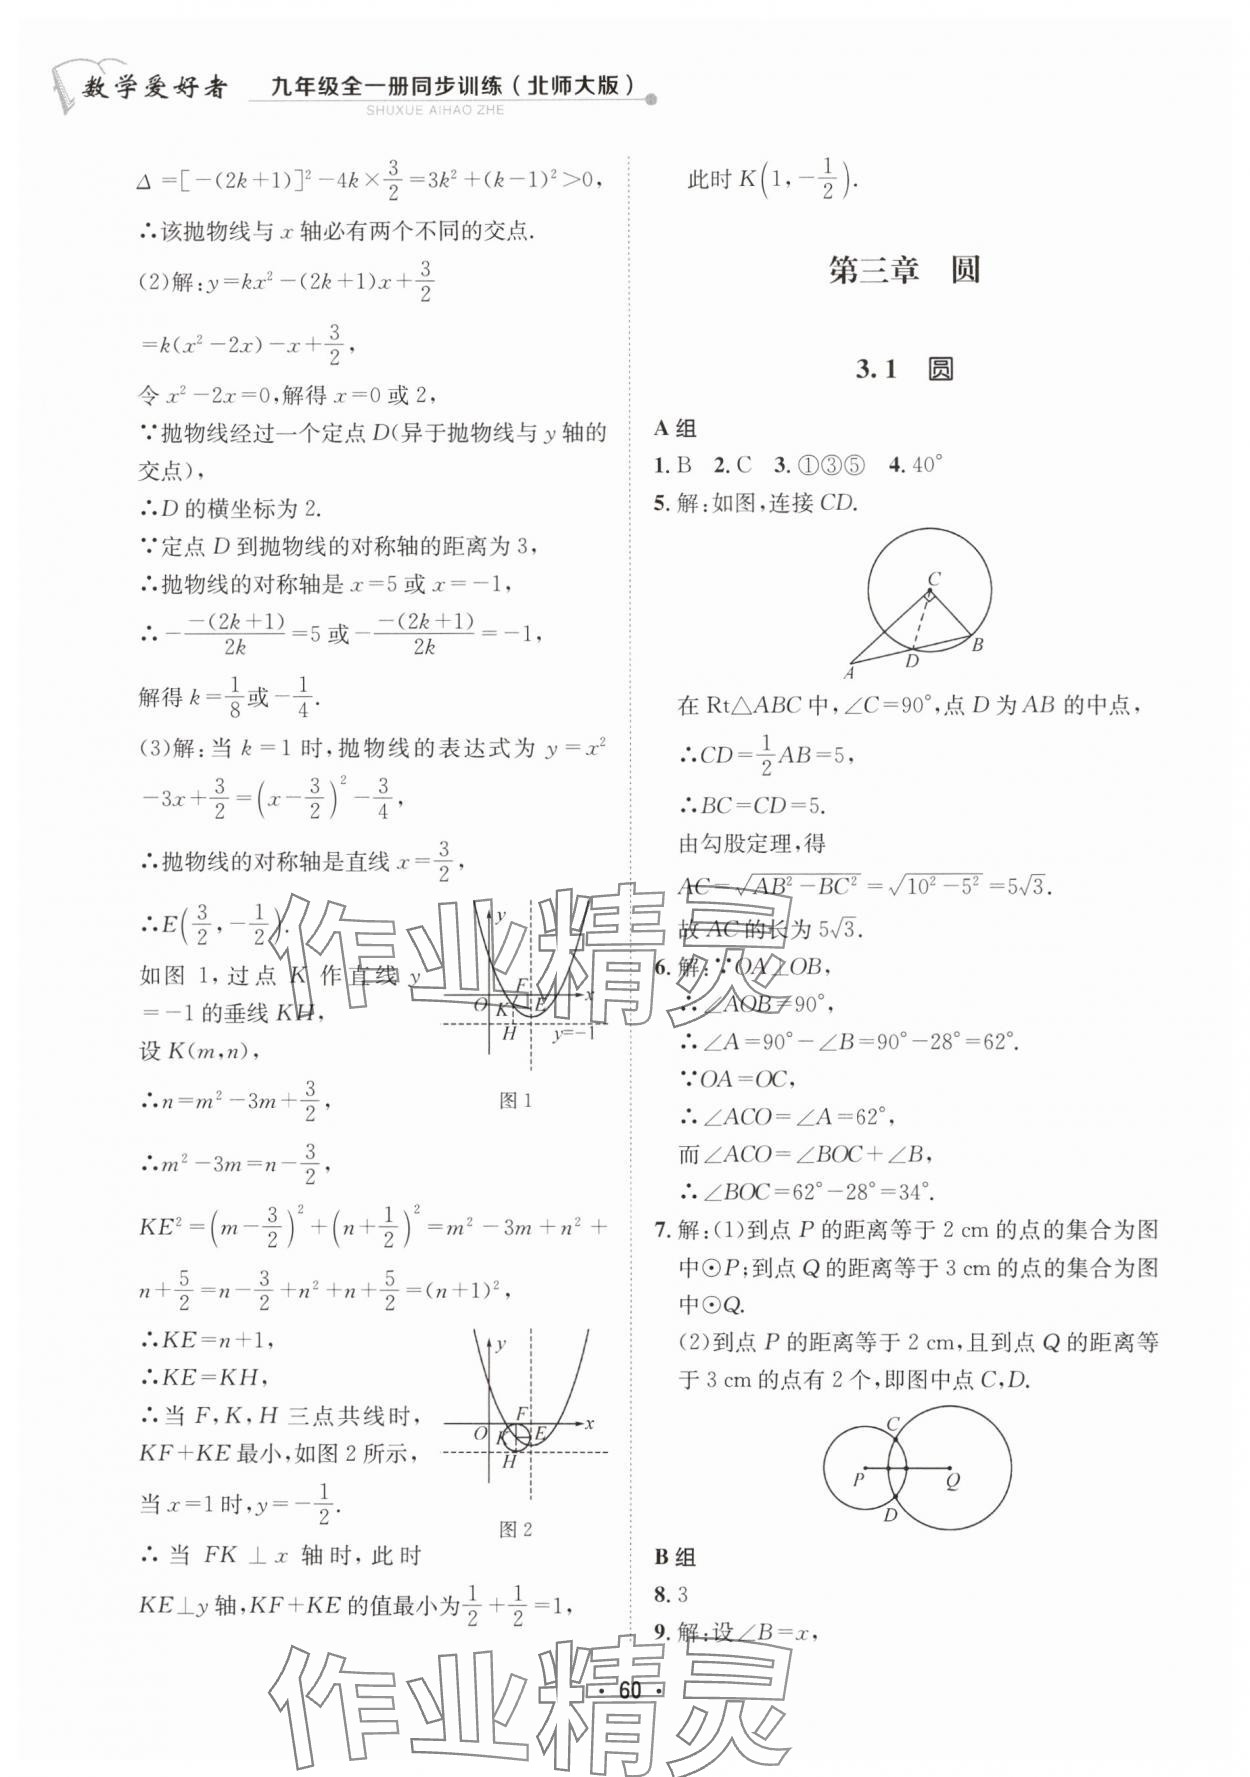 数学爱好者 九年级全一册同步训练(北师大版)
SHUXUE AIHAO ZHE
Δ=[-(2k+1)]²-4k×3/2=3k²+(k-1)²>0,
∴该抛物线与 x 轴必有两个不同的交点.
(2)解:y=kx²-(2k+1)x+3/2
=k(x²-2x)-x+3/2,
令 x²-2x=0,解得 x=0 或 2,
∵抛物线经过一个定点 D(异于抛物线与 y 轴的
交点),
∴D 的横坐标为 2.
∵定点 D 到抛物线的对称轴的距离为 3,
∴抛物线的对称轴是 x=5 或 x=-1,
∴-(-(2k+1))/(2k)=5 或-(-(2k+1))/(2k)=-1,
解得 k=1/8或-1/4.
(3)解:当 k=1 时,抛物线的表达式为 y=x²
-3x+3/2=(x-3/2)²-3/4,
∴抛物线的对称轴是直线 x=3/2,
∴E(3/2,-1/2).
如图 1,过点 K 作直线 y
=-1 的垂线 KH,
设 K(m,n),
∴n=m²-3m+3/2,
∴m²-3m=n-3/2,
y
F
O K E x
H y=-1
图 1
KE²=(m-3/2)²+(n+1/2)²=m²-3m+n²+
n+5/2=n-3/2+n²+n+5/2=(n+1)²,
∴KE=n+1,
∴KE=KH,
∴当 F,K,H 三点共线时,
KF+KE 最小,如图 2 所示,
当 x=1 时,y=-1/2.
∴当 FK⊥x 轴时,此时
y
F
O K E x
H
图 2
KE⊥y 轴,KF+KE 的值最小为1/2+1/2=1,
此时 K(1,-1/2).
第三章 圆
3.1 圆
A 组
1. B 2. C 3. ①③⑤ 4. 40°
5. 解:如图,连接 CD.
C
B
D
A
在 Rt△ABC 中,∠C=90°,点 D 为 AB 的中点,
∴CD=1/2AB=5,
∴BC=CD=5.
由勾股定理,得
AC=√(AB²-BC²)=√(10²-5²)=5√3.
故 AC 的长为 5√3.
6. 解:∵OA⊥OB,
∴∠AOB=90°,
∴∠A=90°-∠B=90°-28°=62°.
∵OA=OC,
∴∠ACO=∠A=62°,
而∠ACO=∠BOC+∠B,
∴∠BOC=62°-28°=34°.
7. 解:(1)到点 P 的距离等于 2 cm 的点的集合为图
中⊙P;到点 Q 的距离等于 3 cm 的点的集合为图
中⊙Q.
(2)到点 P 的距离等于 2 cm,且到点 Q 的距离等
于 3 cm 的点有 2 个,即图中点 C,D.
C
P Q
D
B 组
8. 3
9. 解:设∠B=x,
· 60 ·
作业精灵
作业精灵